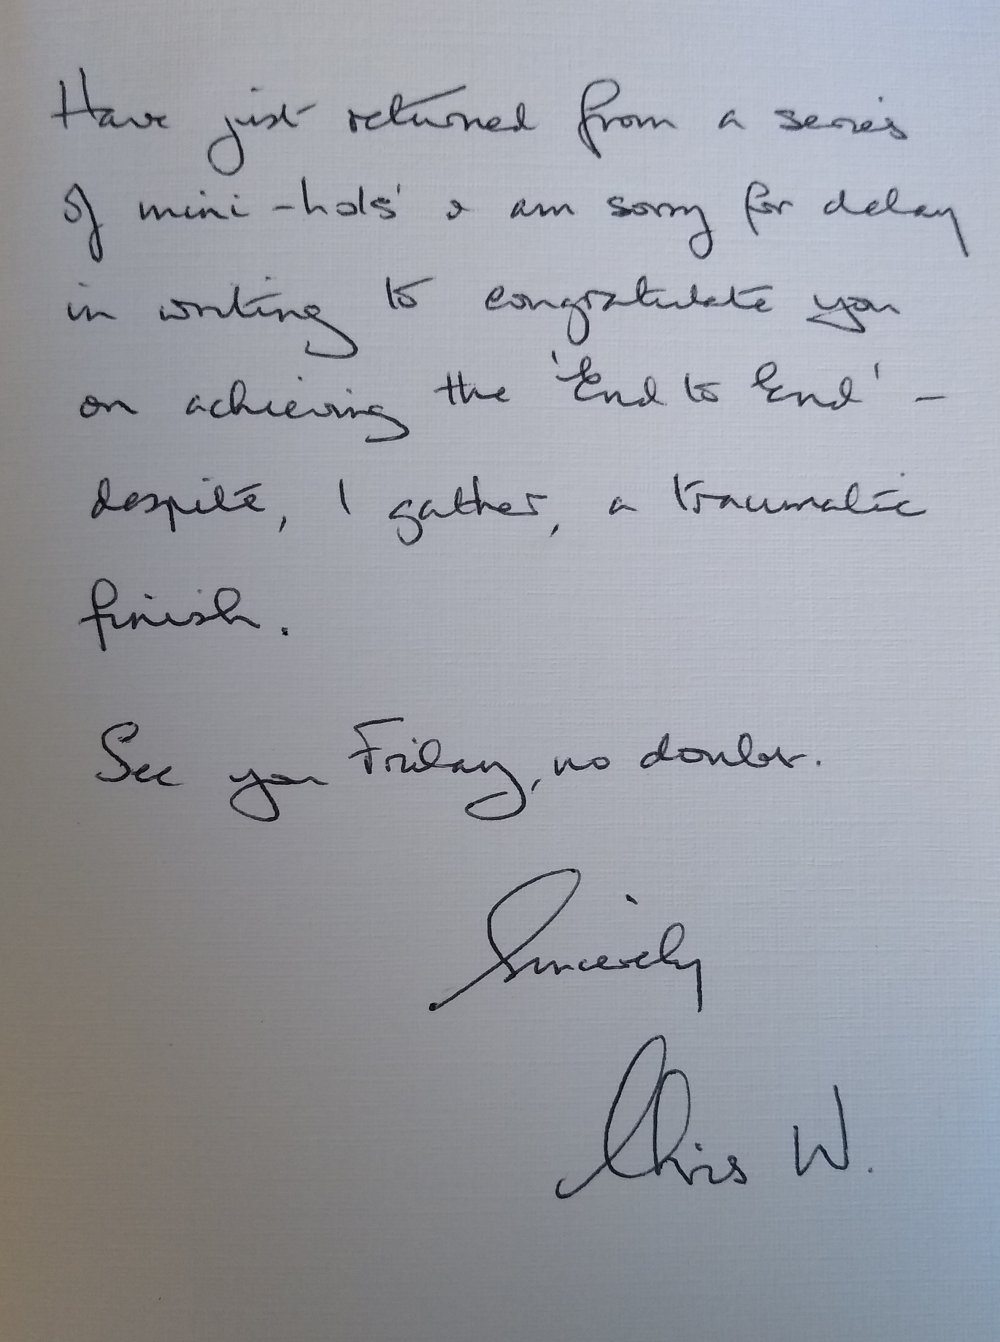 Have just returned from a series
of mini-hols' & am sorry for delay
in writing to congratulate you
on achieving the 'End to End' -
despite, I gather, a traumatic
finish.
See you Friday, no doubt.
Sincerely
Chris W.